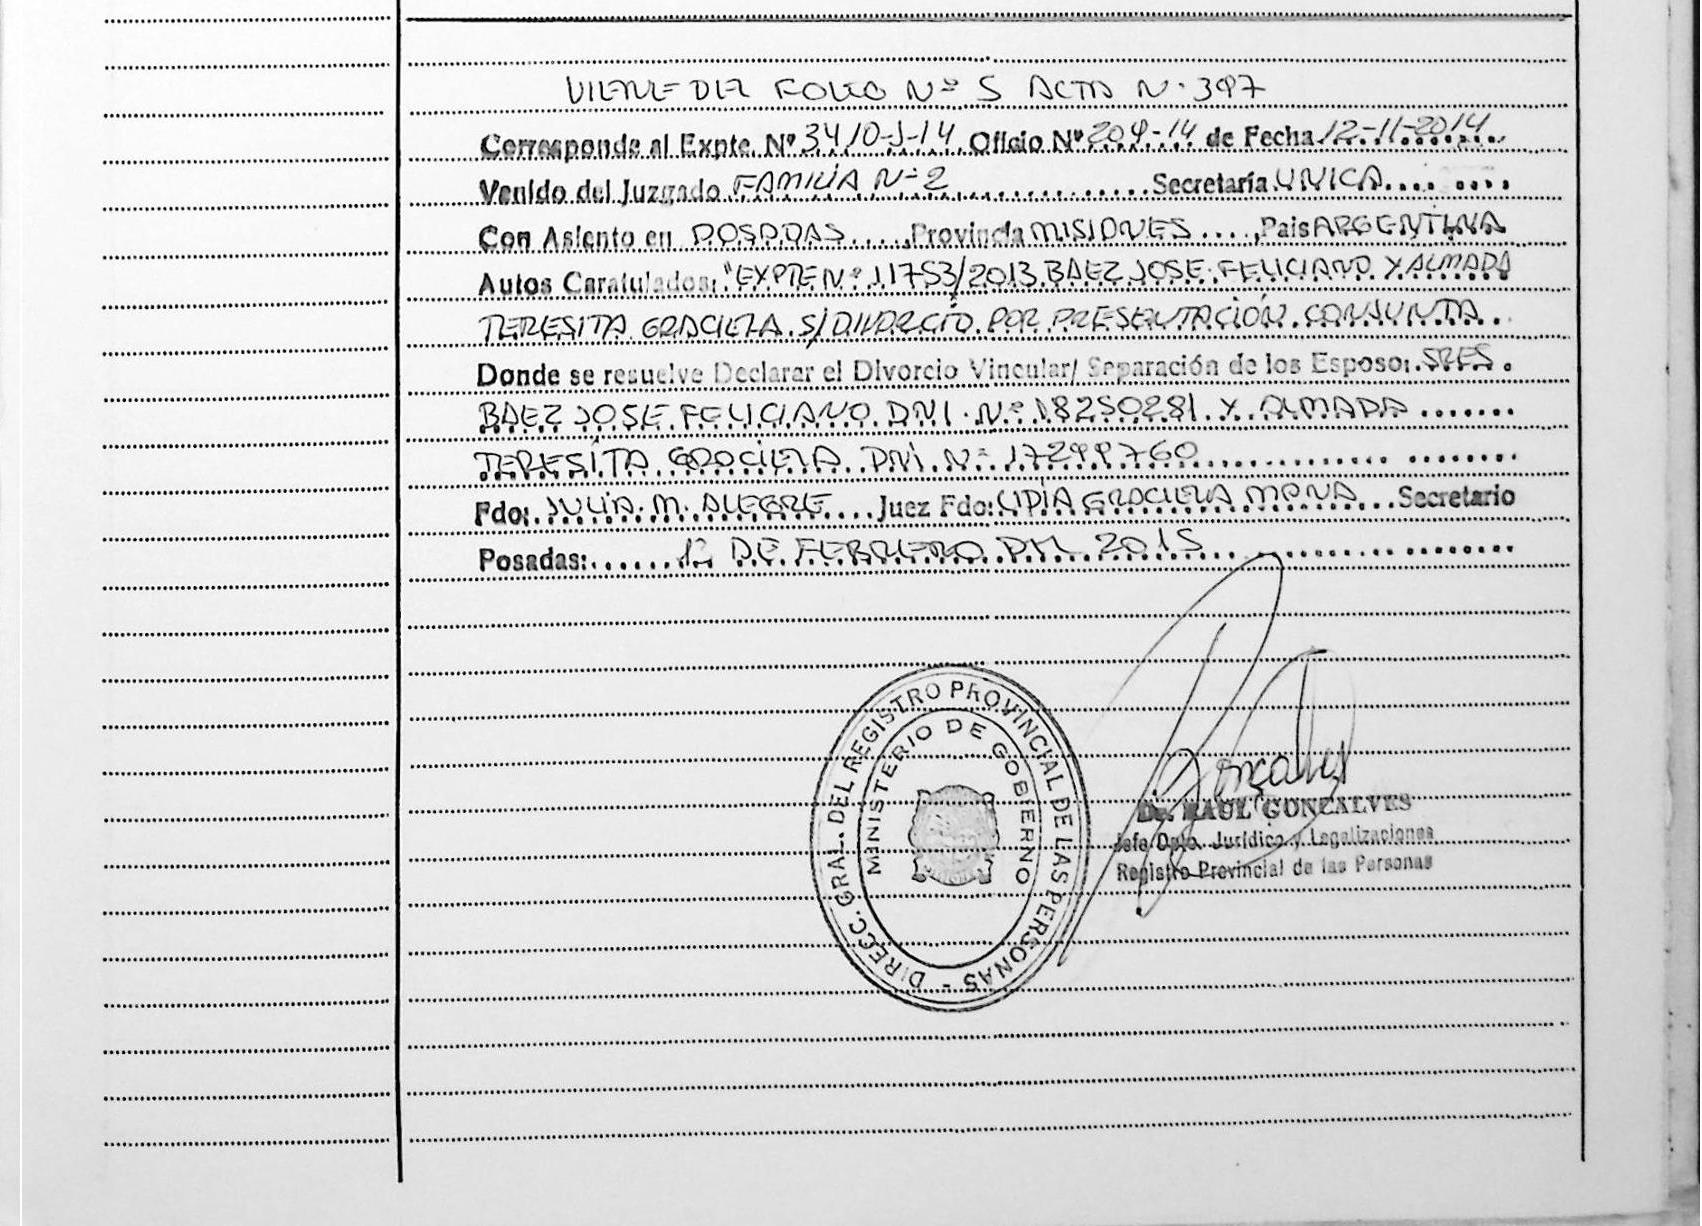 VIENE DEL FOLIO Nº 5 ACTA N. 397
Corresponde al Expte. Nº 3410-J-14 Oficio Nº 209-14 de Fecha 12-11-2014
Venido del Juzgado FAMILIA Nº 2 Secretaría UNICA
Con Asiento en POSADAS, Provincia MISIONES, Pais ARGENTINA
Autos Caratulados: "EXPTE Nº 11753/2013 BAEZ JOSE FELICIANO Y ALMADA
TERESITA GRACIELA S/DIVORCIO POR PRESENTACIÓN CONJUNTA
Donde se resuelve Declarar el Divorcio Vincular/ Separación de los Esposo: SRES.
BAEZ JOSE FELICIANO DNI. Nº 18250281 Y ALMADA
TERESITA GRACIELA DNI Nº 17299760
Fdo: JULIA M. ALEGRE Juez Fdo: LIDIA GRACIELA Secretario
Posadas: 12 DE FEBRERO DEL 2015
DIRECC. GRAL. DEL REGISTRO PROVINCIAL DE LAS PERSONAS -
MINISTERIO DE GOBIERNO
Gonçalves
Dr. RAUL GONCALVES
Jefe Dpto. Jurídico y Legalizaciones
Registro Provincial de las Personas